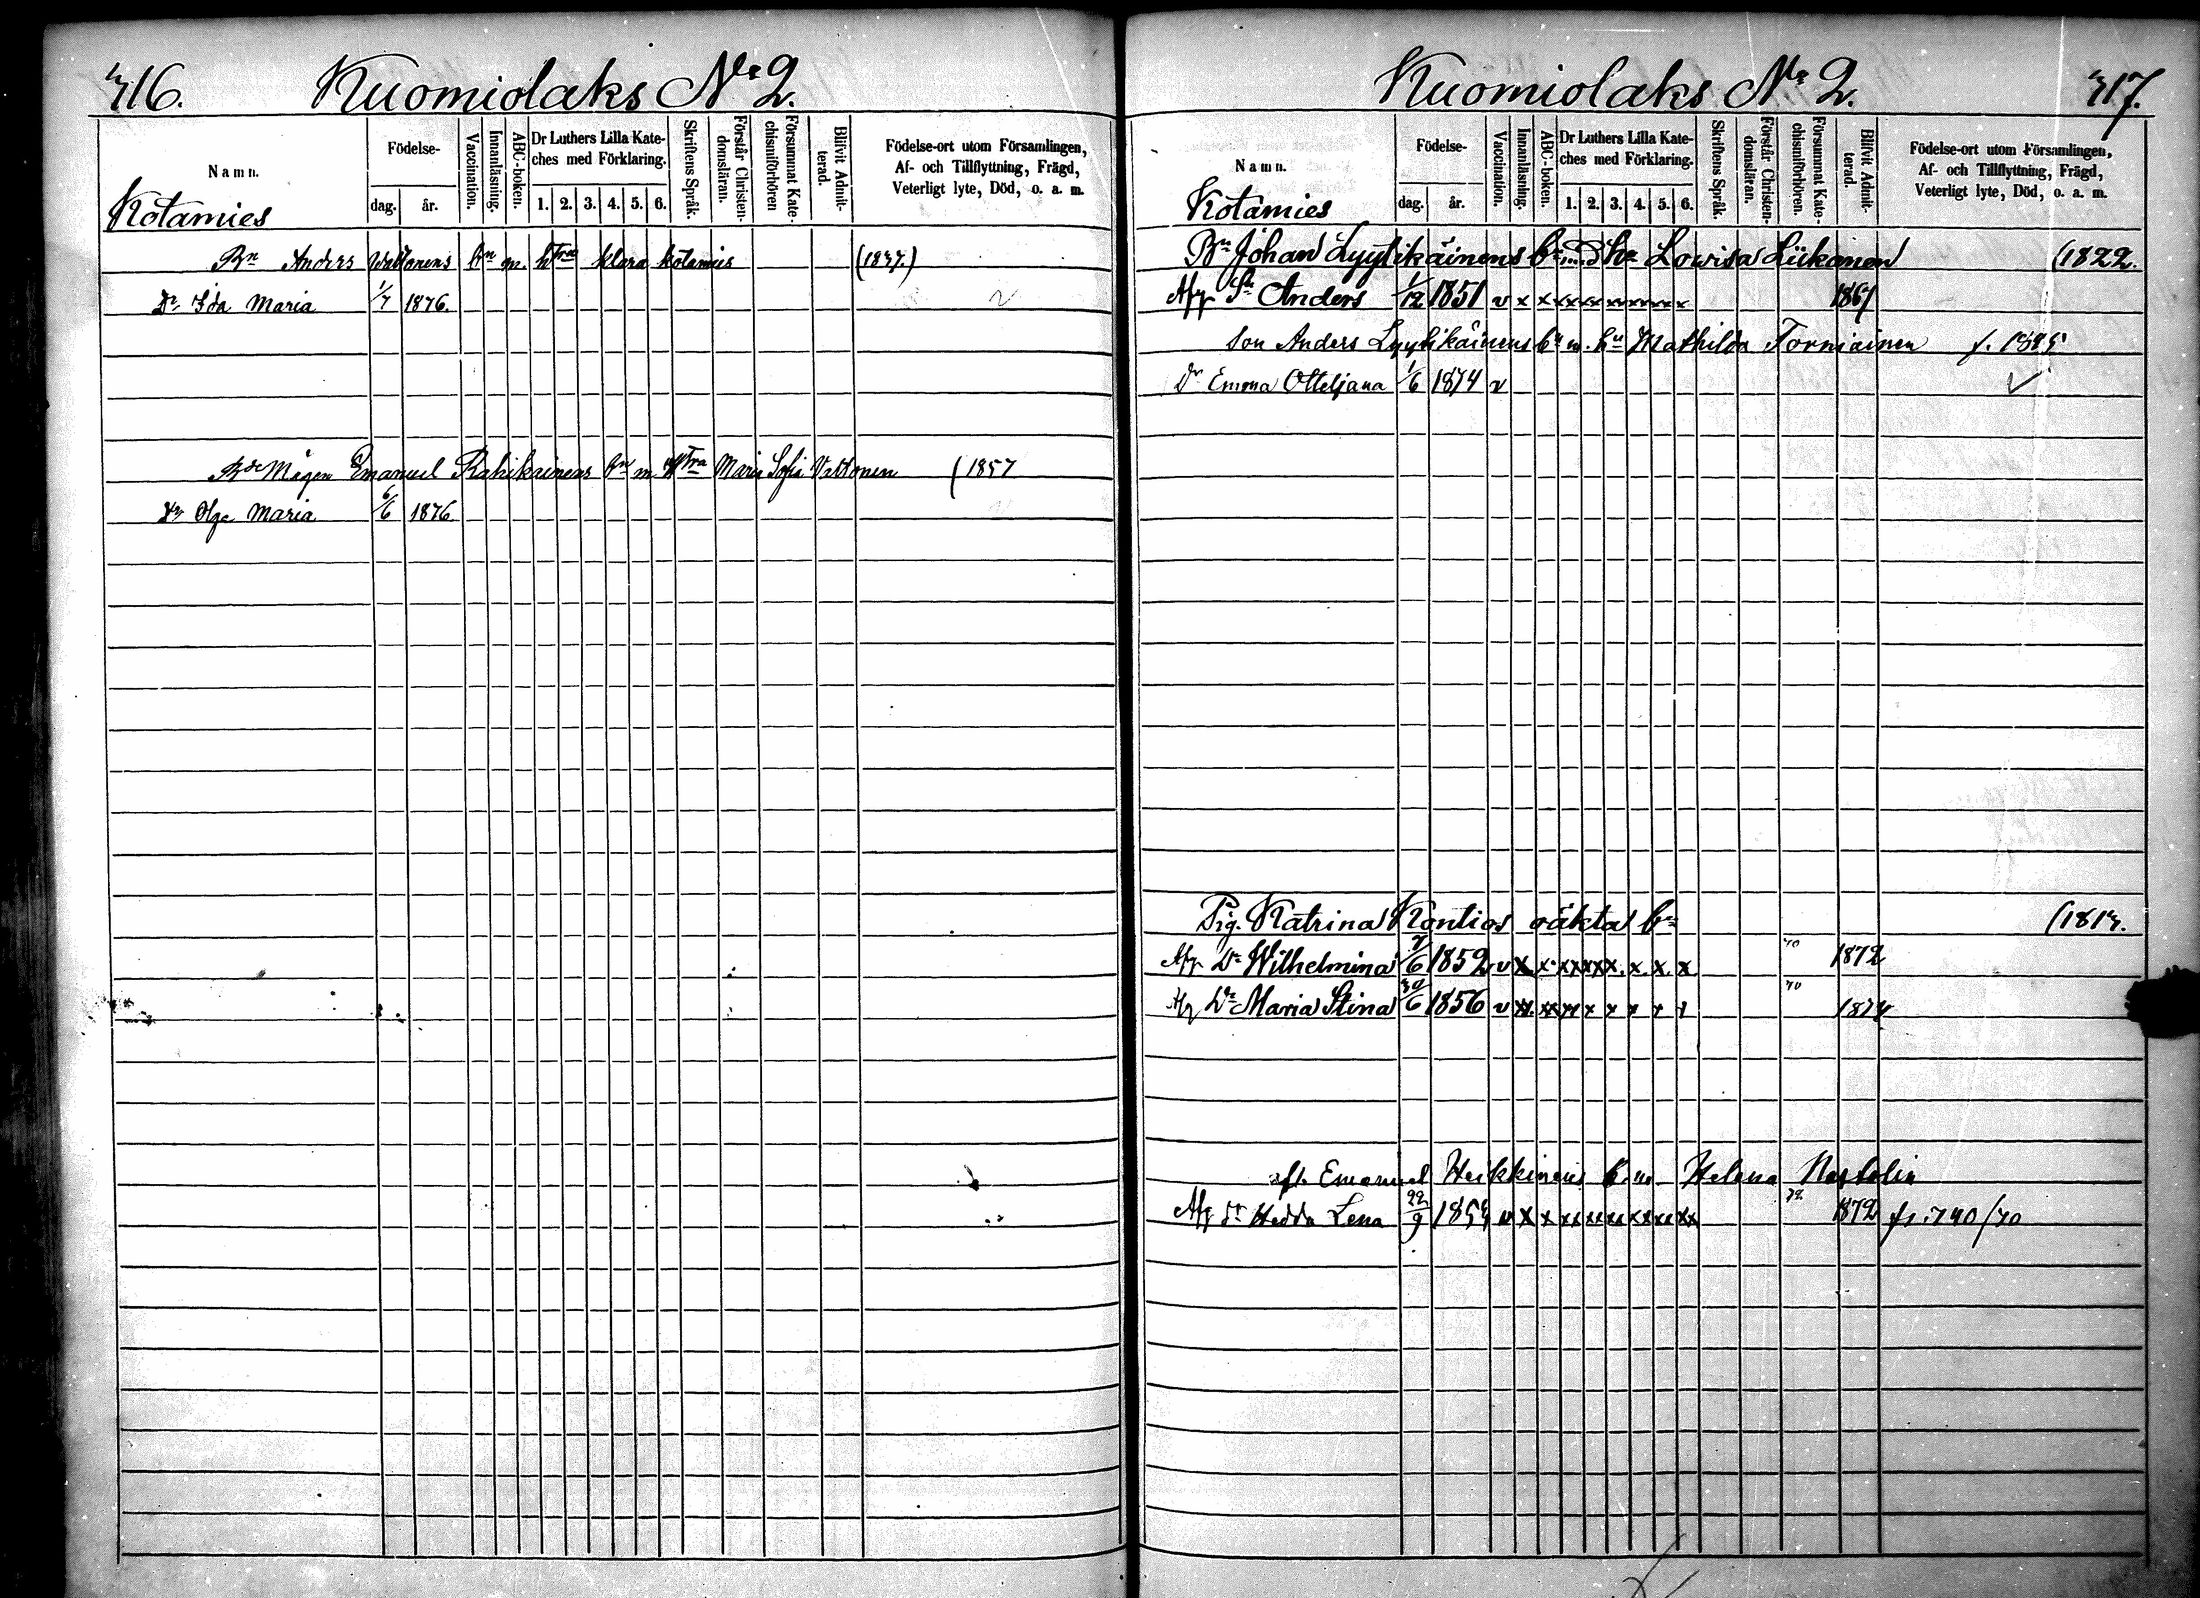 316. Kuomiolaks No 2.
Namn.
Födelse-
dag. år.
Vaccination.
Innanläsning.
ABC-boken.
Dr Luthers Lilla Kate-
ches med Förklaring.
1. 2. 3. 4. 5. 6.
Skriftens Språk.
Förstår Christen-
domsläran.
Försummat Kate-
chismiförhören
Blifvit Admit-
terad.
Födelse-ort utom Församlingen,
Af- och Tillflyttning, Frägd,
Veterligt lyte, Död, o. a. m.
Kotamies
Bn Anders Wattonens bn m. h Tra Klara Kotamies (1837.)
Dr Ida Maria 1/7 1876.
Mågen Emanuel Rahikainens bn m Tra Maria Sofia Vattonen (1857
Dr Olga Maria 6/6 1876
Kuomiolaks No 2. 317.
Namn.
Födelse-
dag. år.
Vaccination.
Innanläsning.
ABC-boken.
Dr Luthers Lilla Kate-
ches med Förklaring.
1. 2. 3. 4. 5. 6.
Skriftens Språk.
Förstår Christen-
domsläran.
Försummat Kate-
chismiförhören.
Blifvit Admit-
terad.
Födelse-ort utom Församlingen,
Af- och Tillflyttning, Frägd,
Veterligt lyte, Död, o. a. m.
Kotamies
Bn Johan Lyytikäinens bn med hu Lowisa Liikanen (1822.
Afg Sn Anders 1/12 1851 v x x x x x x x x x 1867
Son Anders Lyytikäinens bn m. hu Mathilda Torniainen
Dr Emma Otteljana 1/6 1874 v
Pig. Katrina Kontios oäkta bn (1813.
Afg Dr Wilhelmina 7/6 1852 v x x x x x x x x x 70 1872
Afg Dr Maria Stina 30/6 1856 v x x x x x x x x 70 1873
aft. Emanuel Heikkinens b. m Helena
Afg dr Hedda Lena 22/9 1853 v x x x x x x x x 72 1872 fr. 740/70